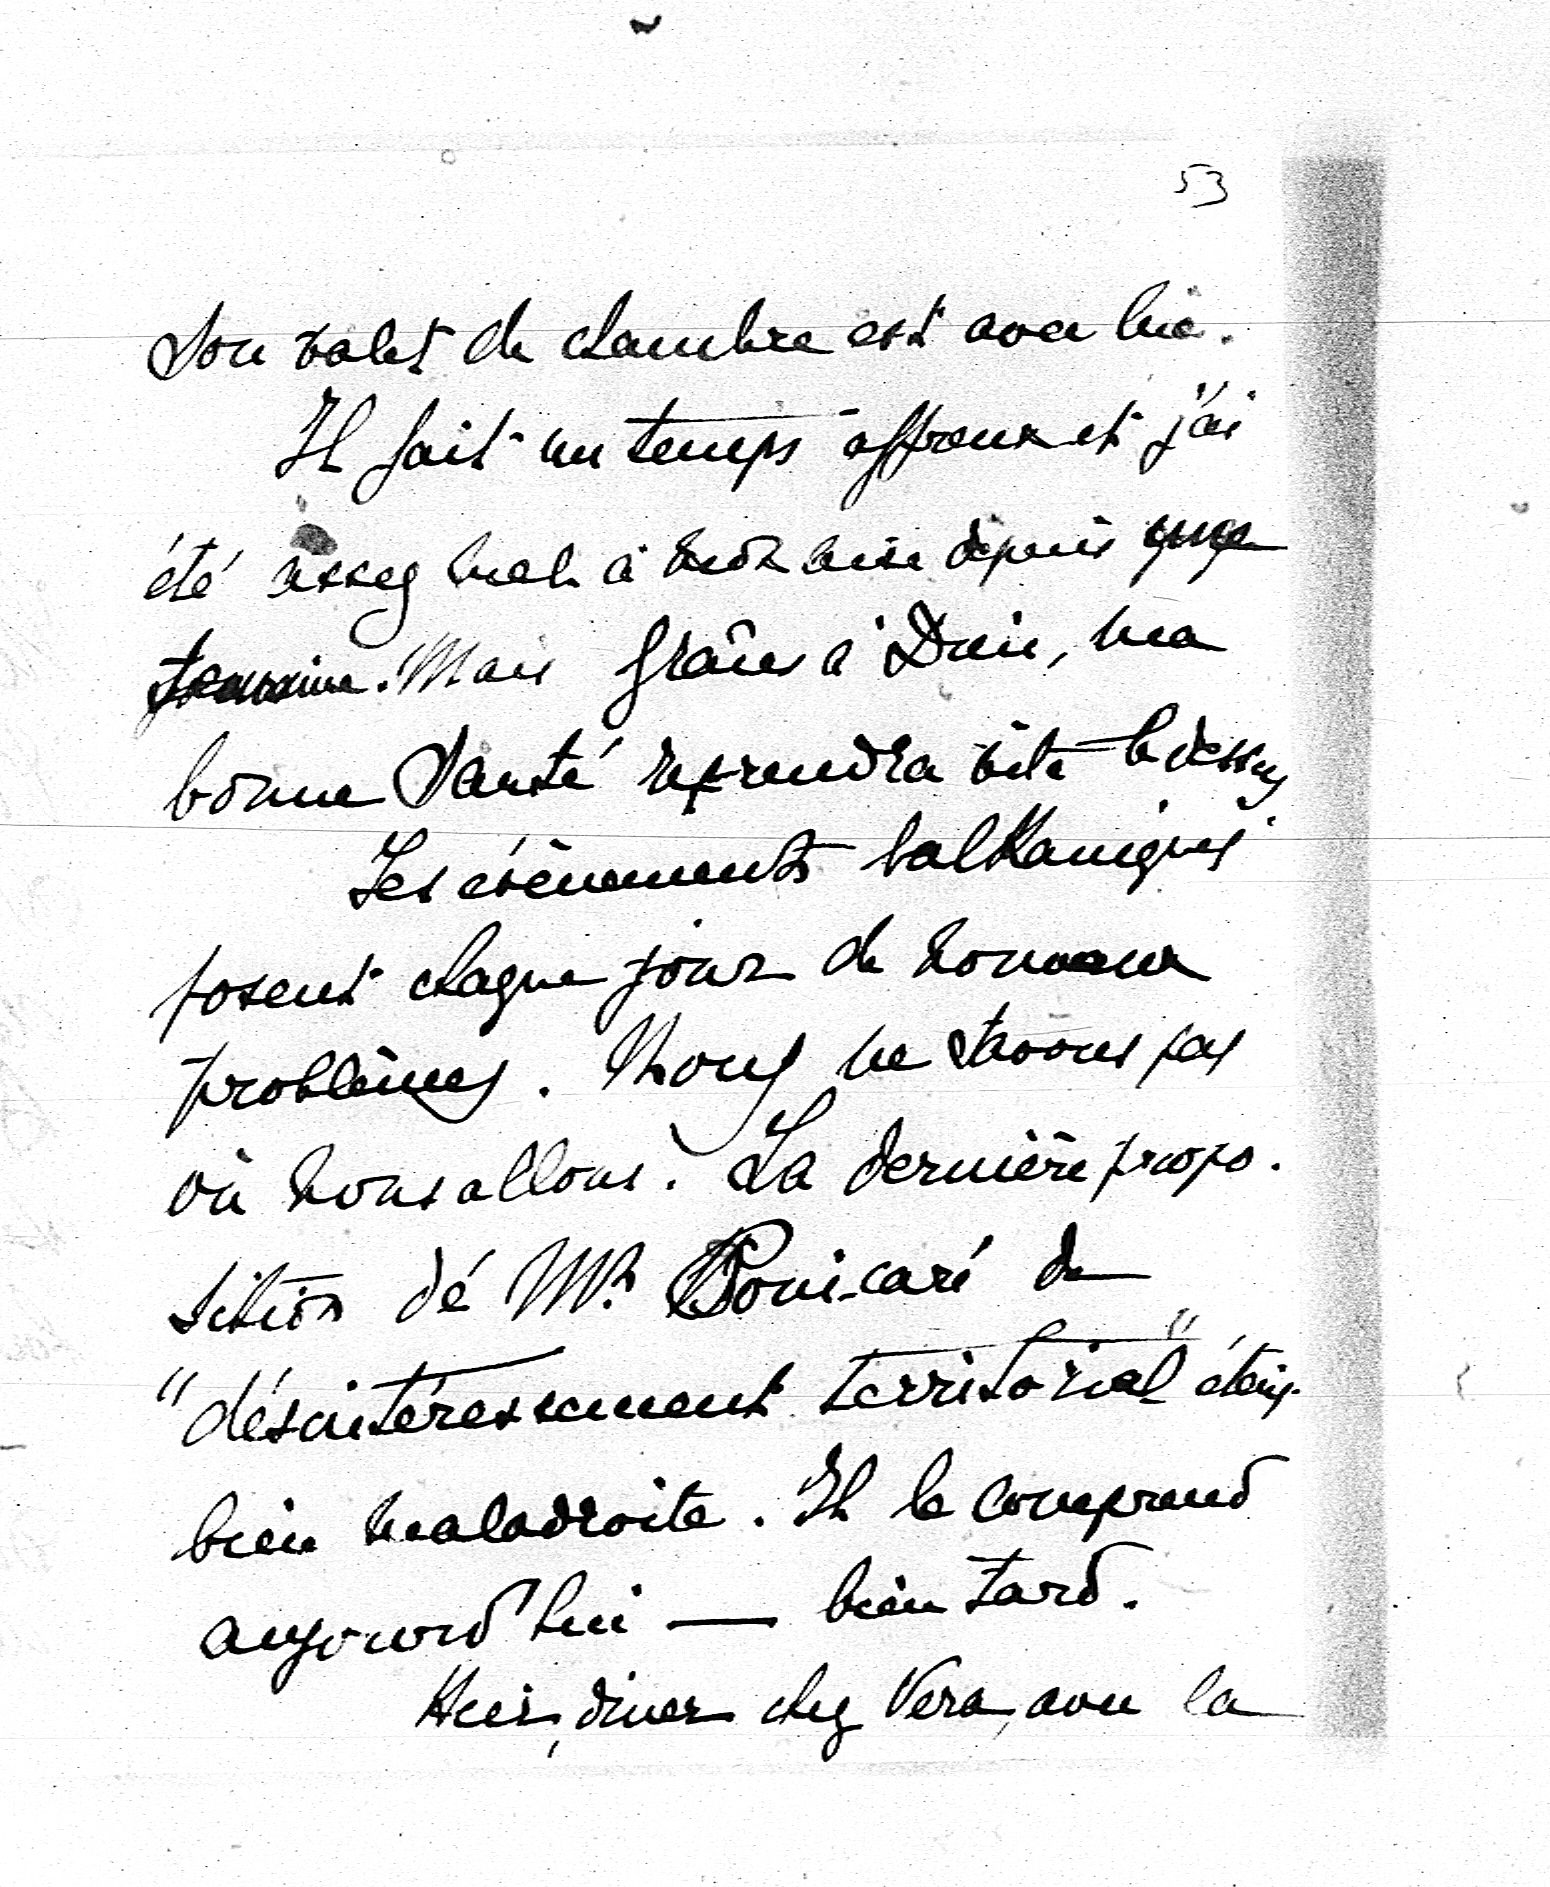 53
Son valet de chambre est avec lui.
Il fait un temps affreux et j'ai
été assez mal à mon aise depuis
semaine. Mais grâces à Dieu, ma
bonne santé reprendra vite le dessus
Les évènements balkaniques
posent chaque jour de nouveaux
problèmes. Nous ne savons pas
où nous allons. La dernière propo-
sition dé Mr. Poincaré de
"désintéressement territorial" était
bien maladroite. Il le comprend
aujourd'hui — bien tard.
Hier, diner chez Vera, avec la